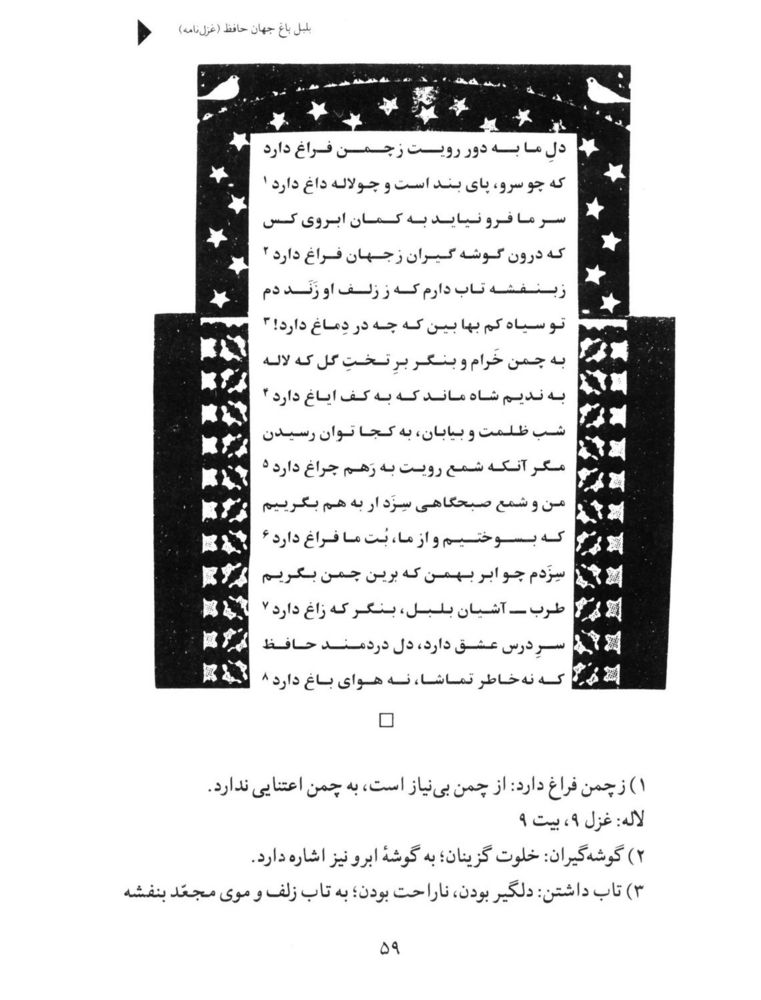 بلبل باغ جهان حافظ (غزل‌نامه)
دلِ ما به دور رویت ز چمن فراغ دارد
که چو سرو، پای بند است و چو لاله داغ دارد ۱
سر ما فرو نیاید به کمان ابروی کس
که درون گوشه گیران ز جهان فراغ دارد ۲
ز بنفشه تاب دارم که ز زلف او زَنَد دم
تو سیاه کم بها بین که چه در دِماغ دارد! ۳
به چمن خَرام و بنگر برِ تختِ گل که لاله
به ندیم شاه ماند که به کف ایاغ دارد ۴
شب ظلمت و بیابان، به کجا توان رسیدن
مگر آنکه شمع رویت به رَهم چراغ دارد ۵
من و شمع صبحگاهی سِزَد ار به هم بگرییم
که بسوختیم و از ما، بُت ما فراغ دارد ۶
سِزَدم چو ابر بهمن که برین چمن بگریم
طرب ــ آشیان بلبل، بنگر که زاغ دارد ۷
سرِ درس عشق دارد، دل دردمند حافظ
که نه خاطر تماشا، نه هوای باغ دارد ۸
۱) ز چمن فراغ دارد: از چمن بی‌نیاز است، به چمن اعتنایی ندارد.
لاله: غزل ۹، بیت ۹
۲) گوشه‌گیران: خلوت گزینان؛ به گوشهٔ ابرو نیز اشاره دارد.
۳) تاب داشتن: دلگیر بودن، ناراحت بودن؛ به تاب زلف و موی مجعّد بنفشه
۵۹